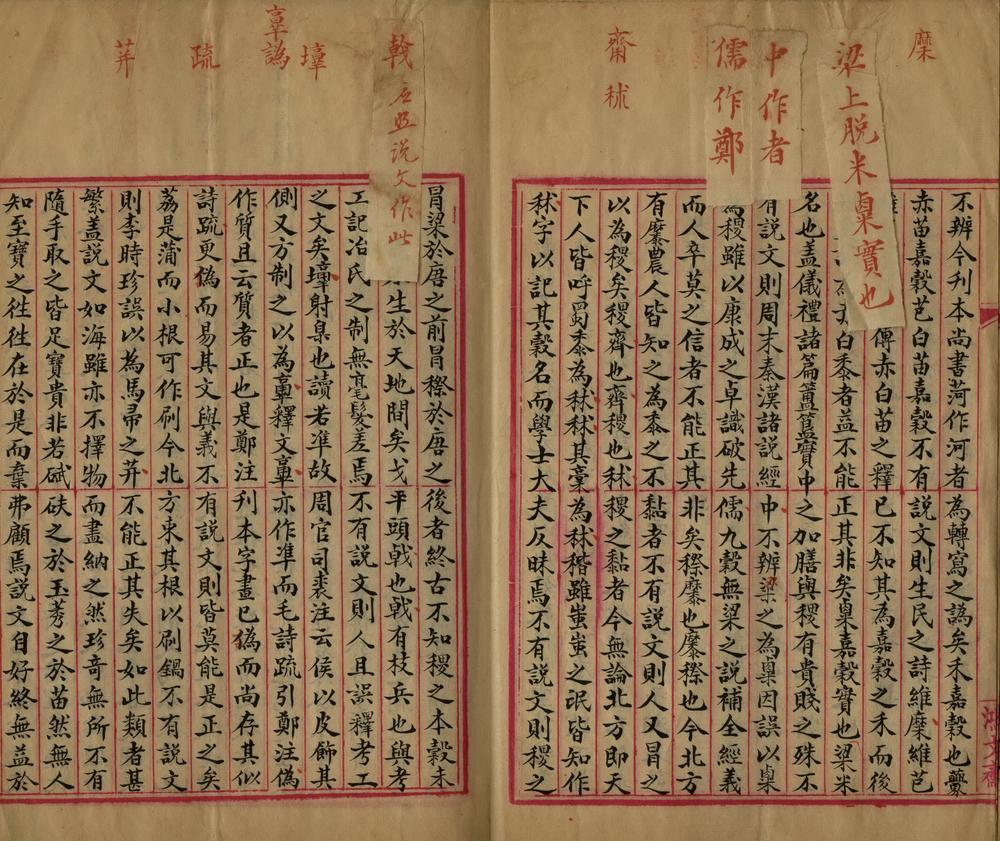 穈
梁上脱米稟實也
中作者
儒作鄭
齋秫
不辨今刋本尚書菏作河者為轉寫之譌矣禾嘉穀也虋
赤苗嘉穀芑白苗嘉穀不有說文則生民之詩維穈維芑
傳赤白苗之釋已不知其為嘉穀之禾而後
白黍者益不能正其非矣稟嘉穀實也梁米
名也盖儀禮諸篇簠簋實中之加膳與稷有貴賤之殊不
有說文則周末秦漢諸説經中不辨梁之為稟因誤以稟
為稷雖以康成之卓識破先儒九穀無梁之說補全經義
而人卒莫之信者不能正其非矣穄穈也穈穄也今北方
有穈農人皆知之為黍之不黏者不有說文則人又冐之
以為稷矣稷齋也齋稷也秫稷之黏者今無論北方即天
下人皆呼蜀黍為秫秫其稾為秫稭雖蚩蚩之泯皆知作
秫字以記其穀名而學士大夫反昧焉不有說文則稷之
戟
應照說文作此
墇
辜譌
疏
荓
冐梁於唐之前冐穄於唐之後者終古不知稷之本穀未
生於天地間矣戈平頭戟也戟有枝兵也與考
工記冶氏之制無毫髮差焉不有說文則人且誤釋考工
之文矣墇射臬也讀若凖故周官司裘注云侯以皮飾其
側又方制之以為辜釋文辜亦作凖而毛詩疏引鄭注偽
作質且云質者正也是鄭注刋本字畫已偽而尚存其似
詩疏更偽而易其文與義不有說文則皆莫能是正之矣
荔是蒲而小根可作刷今北方束其根以刷鍋不有說文
則李時珍誤以為馬帚之荓不能正其失矣如此類者甚
繁盖說文如海雖亦不擇物而盡納之然珍奇無所不有
隨手取之皆足寶貴非若碔砆之於玉莠之於苗然無人
知至寶之往往在於是而棄弗顧焉說文自好終無益於